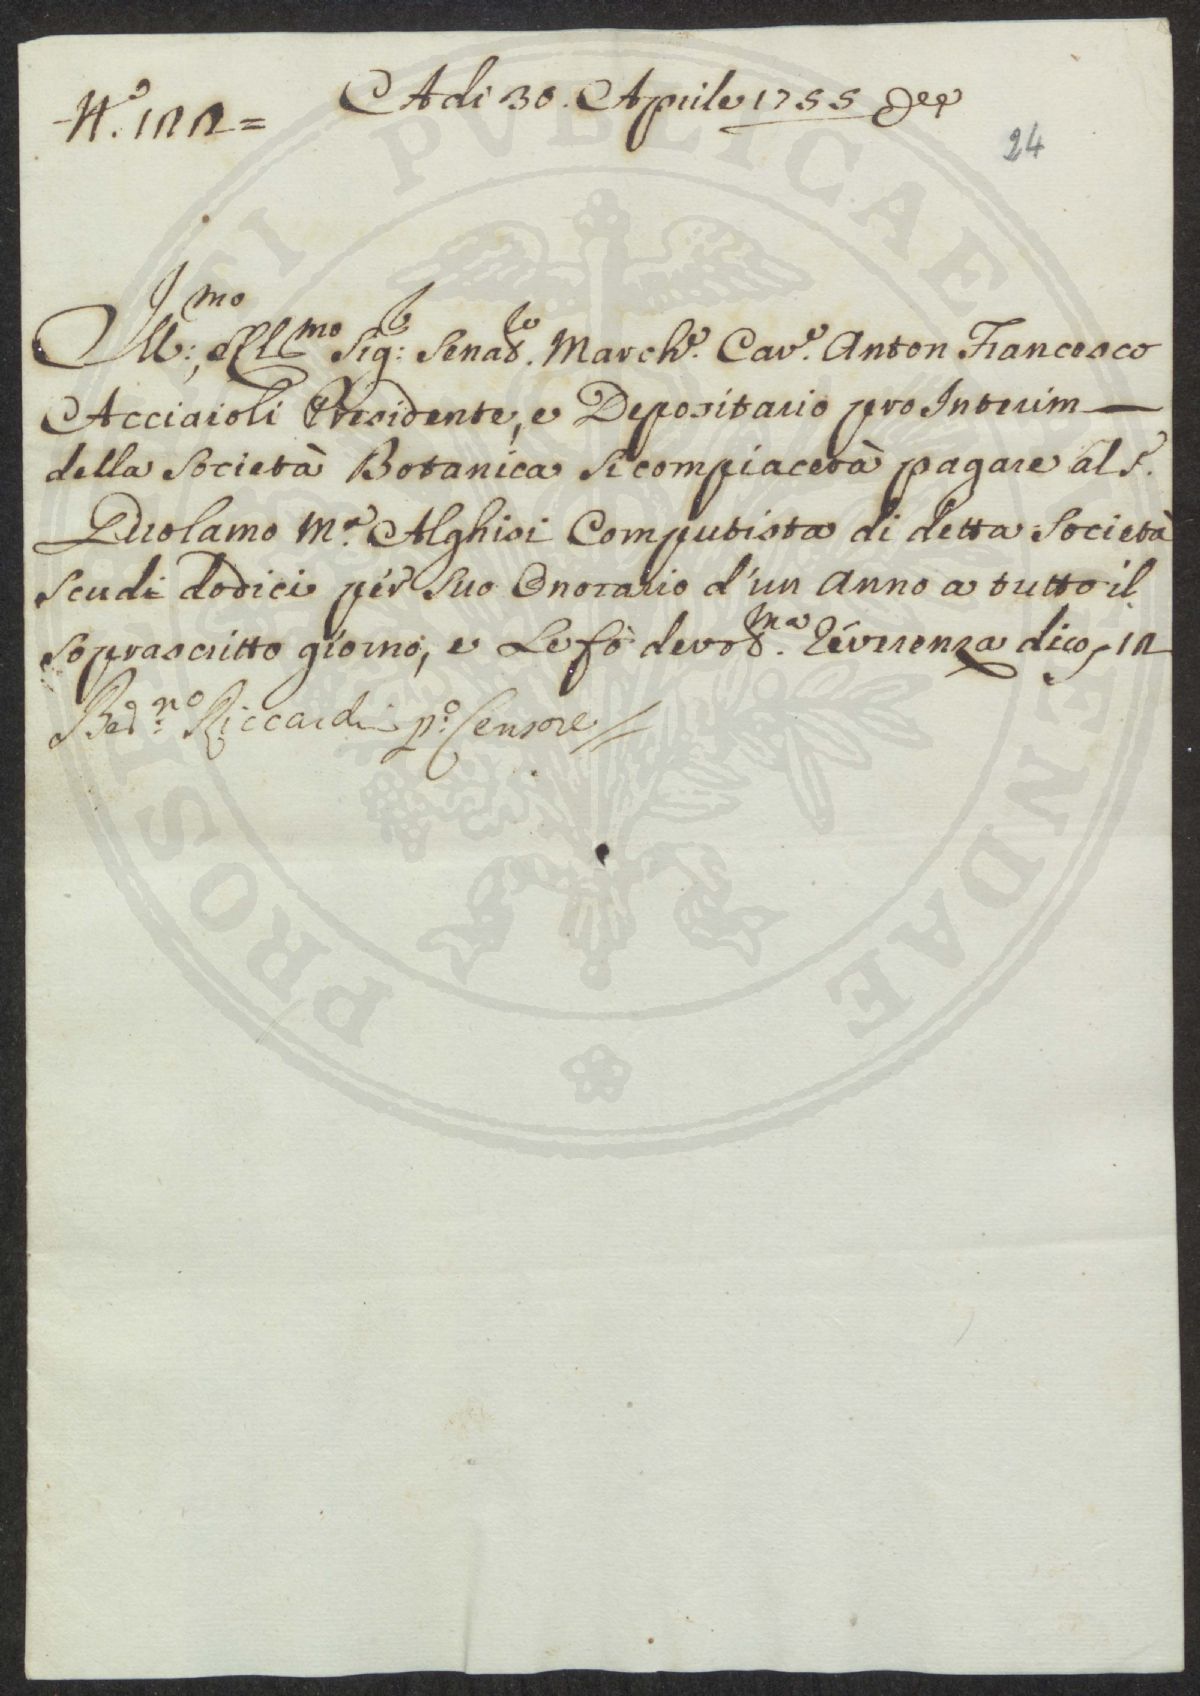 N.º 122 =
Adi 30. Aprile 1755
24
Ill:mo, e Cl:mo Sig:re Senat.re March.e Cav.e Anton Francesco
Acciaioli Presidente, e Depositario pro Interim
della Società Botanica si compiacerà pagare al S.r
Girolamo M.a Alghisi Computista di detta Società
Scudi dodici per suo Onorario d'un Anno a tutto il
soprascritto giorno, e Le fò devot.ma Reverenza dico 12
Bed.no Riccardi p.o Censore
PROSPERITATI PVBLICAE AVGENDAE